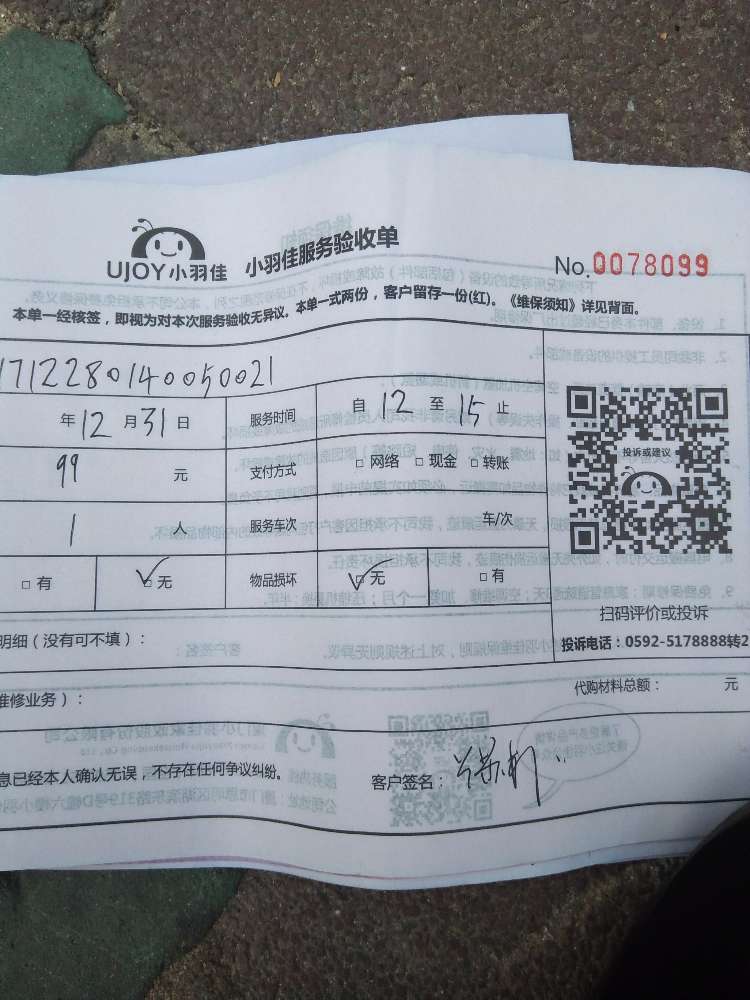 UJOY小羽佳 小羽佳服务验收单
No.0078099
本单一经核签，即视为对本次服务验收无异议。本单一式两份，客户留存一份(红)。《维保须知》详见背面。
1712280140050021
年12月31日 服务时间 自12至15止
99元 支付方式 □网络 □现金 □转账
投诉或建议
1人 服务车次 车/次
□有 □无 物品损坏 □无 □有
扫码评价或投诉
明细（没有可不填）：
投诉电话：0592-5178888转2
维修业务）：
代购材料总额： 元
息已经本人确认无误，不存在任何争议纠纷。 客户签名：